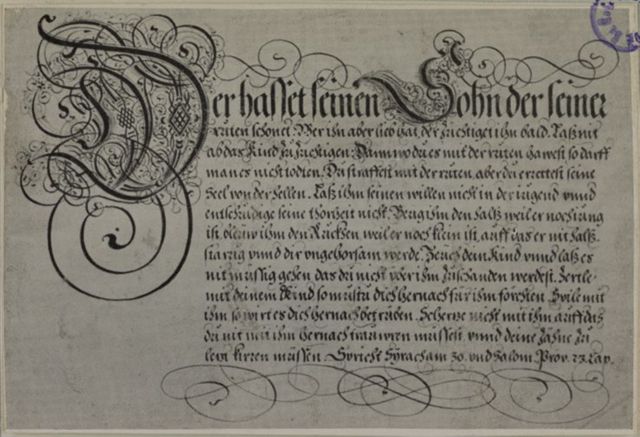 Der hasset seinen Sohn der seiner
rutten schonet. Wer ihn aber lieb hat, der züchtiget ihn bald. Laß nit
ab das Kind zu züchtigen. Dann wo du es mit der rutten hawest so darff
man es nicht tödten. Du straffest mit der rutten, aber du errettest seine
Seel von der Hellen. Laß ihm seinen willen nicht in der iugend vnnd
entschuldige seine thorheit nicht. Beug ihm den Halß weil er noch iung
ist, ihm den Rücken weil er noch klein ist, auff das er nit halß-
starrig vnnd dir vngehorsam werde. Zeuch dein Kind vnnd laß es
nit müssig gehen das du nicht vber ihm zuschanden werdest. Zertle
mit deinem Kind so mustu dich hernach für ihm förchten. Spile mit
ihm so wirt es dich hernach betrüben. Schertze nicht mit ihm auff das
du nit mit ihm hernach trauwren müssest, vnnd deine Zähne zu
letzt kirren müssen. Spricht Syrach am 30. vnd Salom. Prov. 23. Cap.